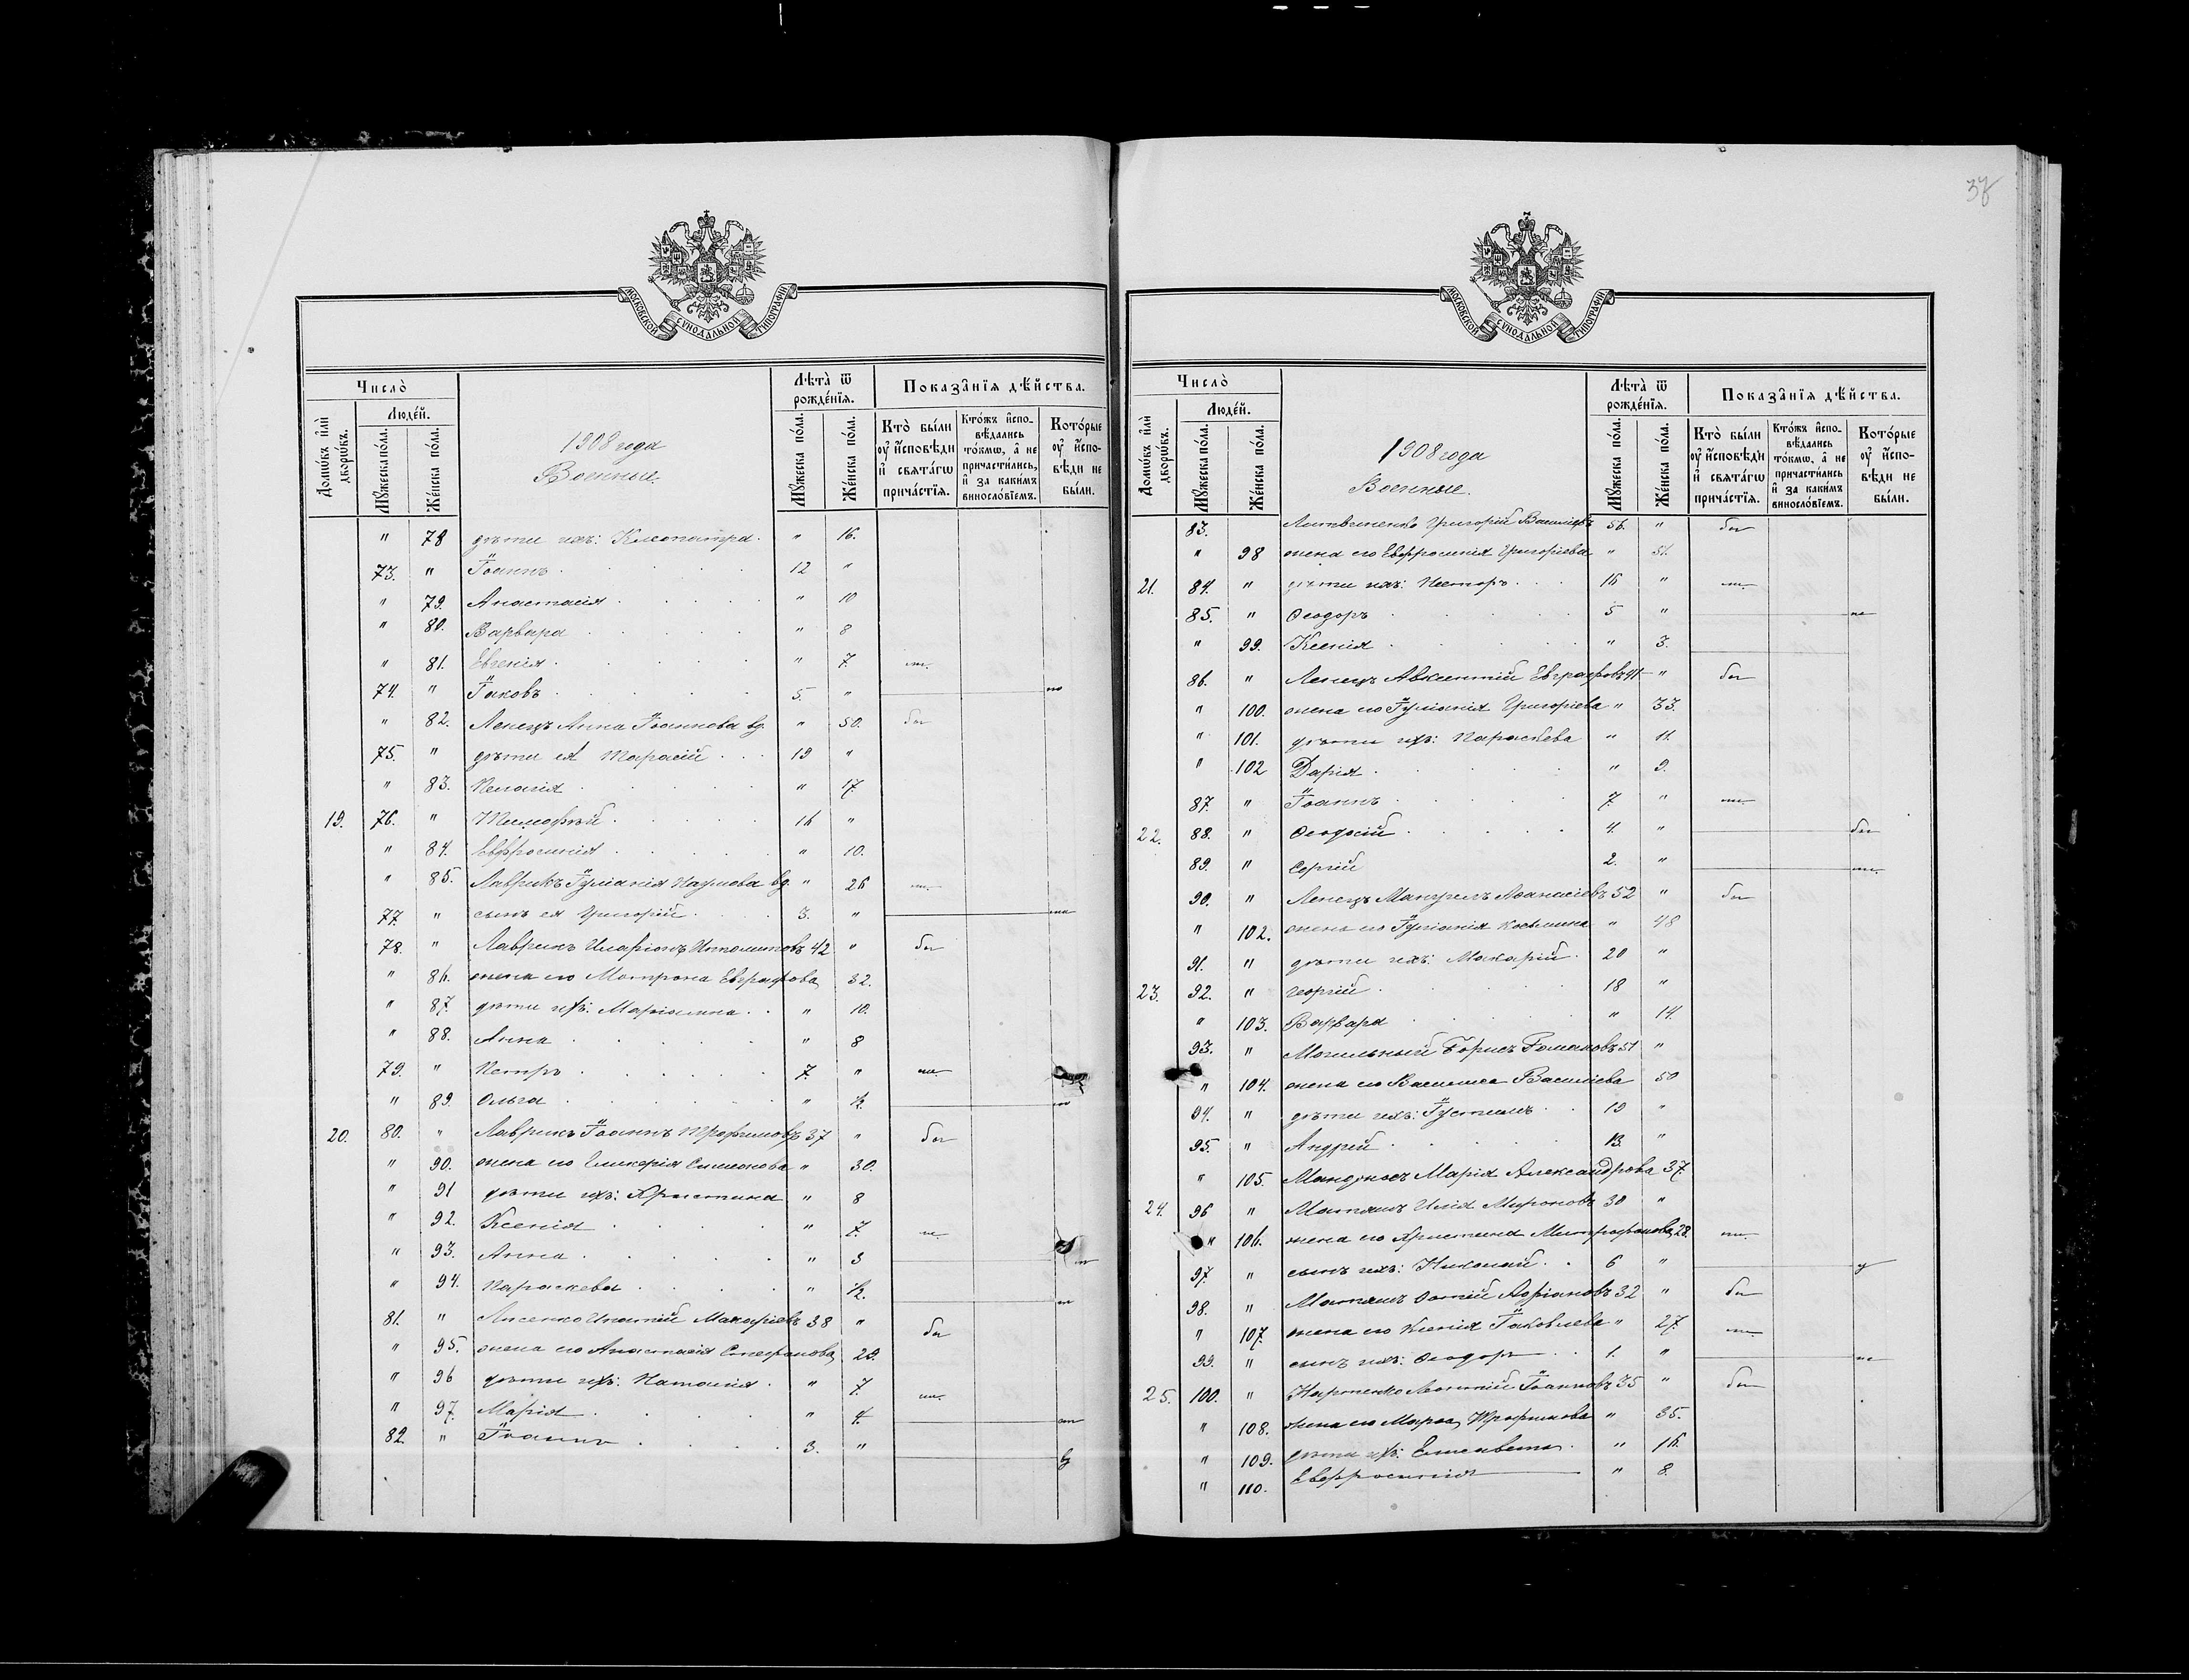 37
МОСКОВСКОЙ СУНОДАЛЬНОЙ ТИПОГРАФІИ
Число̀
Домѡ́въ и҆лѝ дворѡ́въ.
Люде́й.
Мꙋ́жеска по́ла.
Же́нска по́ла.
1908 года
Военные.
Лѣта̀ ѿ рожде́нїѧ.
Мꙋ́жеска по́ла.
Же́нска по́ла.
Показа̑нїѧ дѣ́йства.
Кто̀ бы́ли ᲂу҆ и҆́сповѣди и҆ свѧта́гѡ прича́стїѧ.
Кто́жъ и҆спо-вѣ́дались то́кмѡ, а҆ не причасти́лись, и҆ за каки́мъ виносло́вїемъ.
Кото́рые ᲂу҆ и҆́спо-вѣди не бы́ли.
" 78 дѣти ихъ: Клеопатра. " 16.
73. " Іоаннъ 12 "
" 79. Анастасія " 10
" 80. Варвара " 8
" 81. Евгенія " 7.
74. " Іаковъ 5. "
" 82. Ленецъ Анна Іоаннова вд. " 50. бы
75. " дѣти ея Тарасій 19 "
" 83. Пелагія " 17
19. 76. " Тимофѣй 16 "
" 84. Евфросинія " 10.
" 85. Лаврикъ Іуліанія Наумова вд. " 26
77. " сынъ ея Григорій 3. "
78. " Лаврикъ Иларіонъ 42 " бы
" 86. жена его Матрона Евграфова 32.
" 87. дѣти ихъ: Маріамна " 10.
" 88. Анна " 8
79. " Петръ 7. "
" 89. Ольга " ½.
20. 80. " Лаврикъ Іоаннъ Трофимовъ 37 " бы
" 90. жена его Гликерія Симеонова " 30.
" 91 дѣти ихъ: Христина " 8
" 92. Ксенія " 7.
" 93. Анна " 3
" 94. Параскева " ½.
81. " Лисенко Ипатій Макаріевъ 38 " бы
" 95. жена его Анастасія Стефанова 29.
" 96 дѣти ихъ: Наталія " 7
" 97. Марія " 4
82 " Іоаннъ 3. "
МОСКОВСКОЙ СУНОДАЛЬНОЙ ТИПОГРАФІИ
Число̀
Домѡ́въ и҆лѝ дворѡ́въ.
Люде́й.
Мꙋ́жеска по́ла.
Же́нска по́ла.
1908 года
Военные.
Лѣта̀ ѿ рожде́нїѧ.
Мꙋ́жеска по́ла.
Же́нска по́ла.
Показа̑нїѧ дѣ́йства.
Кто̀ бы́ли ᲂу҆ и҆́сповѣди и҆ свѧта́гѡ прича́стїѧ.
Кто́жъ и҆спо-вѣ́дались то́кмѡ, а҆ не причасти́лись и҆ за каки́мъ виносло́вїемъ.
Кото́рые ᲂу҆ и҆́спо-вѣди не бы́ли.
83. Литвиненко Григорій Васильевъ 56. " бы
" 98 жена его Евфросинія Григоріева " 51.
21. 84. " дѣти ихъ: Несторъ 16 "
85. " Ѳеодоръ 5 "
" 99. Ксенія " 3.
86. " Ленецъ Авксентій Евграфовъ 41 " бы
" 100. жена его Іуліанія Григоріева " 33.
" 101. дѣти ихъ: Параскева " 11.
" 102 Дарія " 9.
87. " Іоаннъ 7 "
22. 88. " Ѳеодосій 4. "
89. " Сергій 2. "
90. " Ленецъ Мануилъ Аѳанасіевъ 52 " бы
" 102. жена его Іуліанія Космина " 48
91. " дѣти ихъ: Макарій 20 "
23. 92. " Георгій 18 "
" 103. Варвара " 14.
93. " Могильный Борисъ Романовъ 51 "
" 104. жена его Василиса Василіева 50
94. " дѣти ихъ: Іустинъ 19 "
95. " Андрей 13. "
" 105. Марія Александрова 37.
24. 96 " Маташъ Илія Мироновъ 30 "
" 106. жена его Христина Митрофанова 28.
97. " сынъ ихъ: Николай 6 "
98. " Маташъ Фотій Адріановъ 32 " бы
" 107. жена его Ксенія Іаковлева " 27.
99. " сынъ ихъ: Ѳеодоръ 1. "
25. 100. " Леонтій Іоанновъ 35 " бы
" 108. жена его Марѳа Трофимова " 35.
" 109. дѣти ихъ: Елисавета " 16.
" 110. Евфросинія " 8.